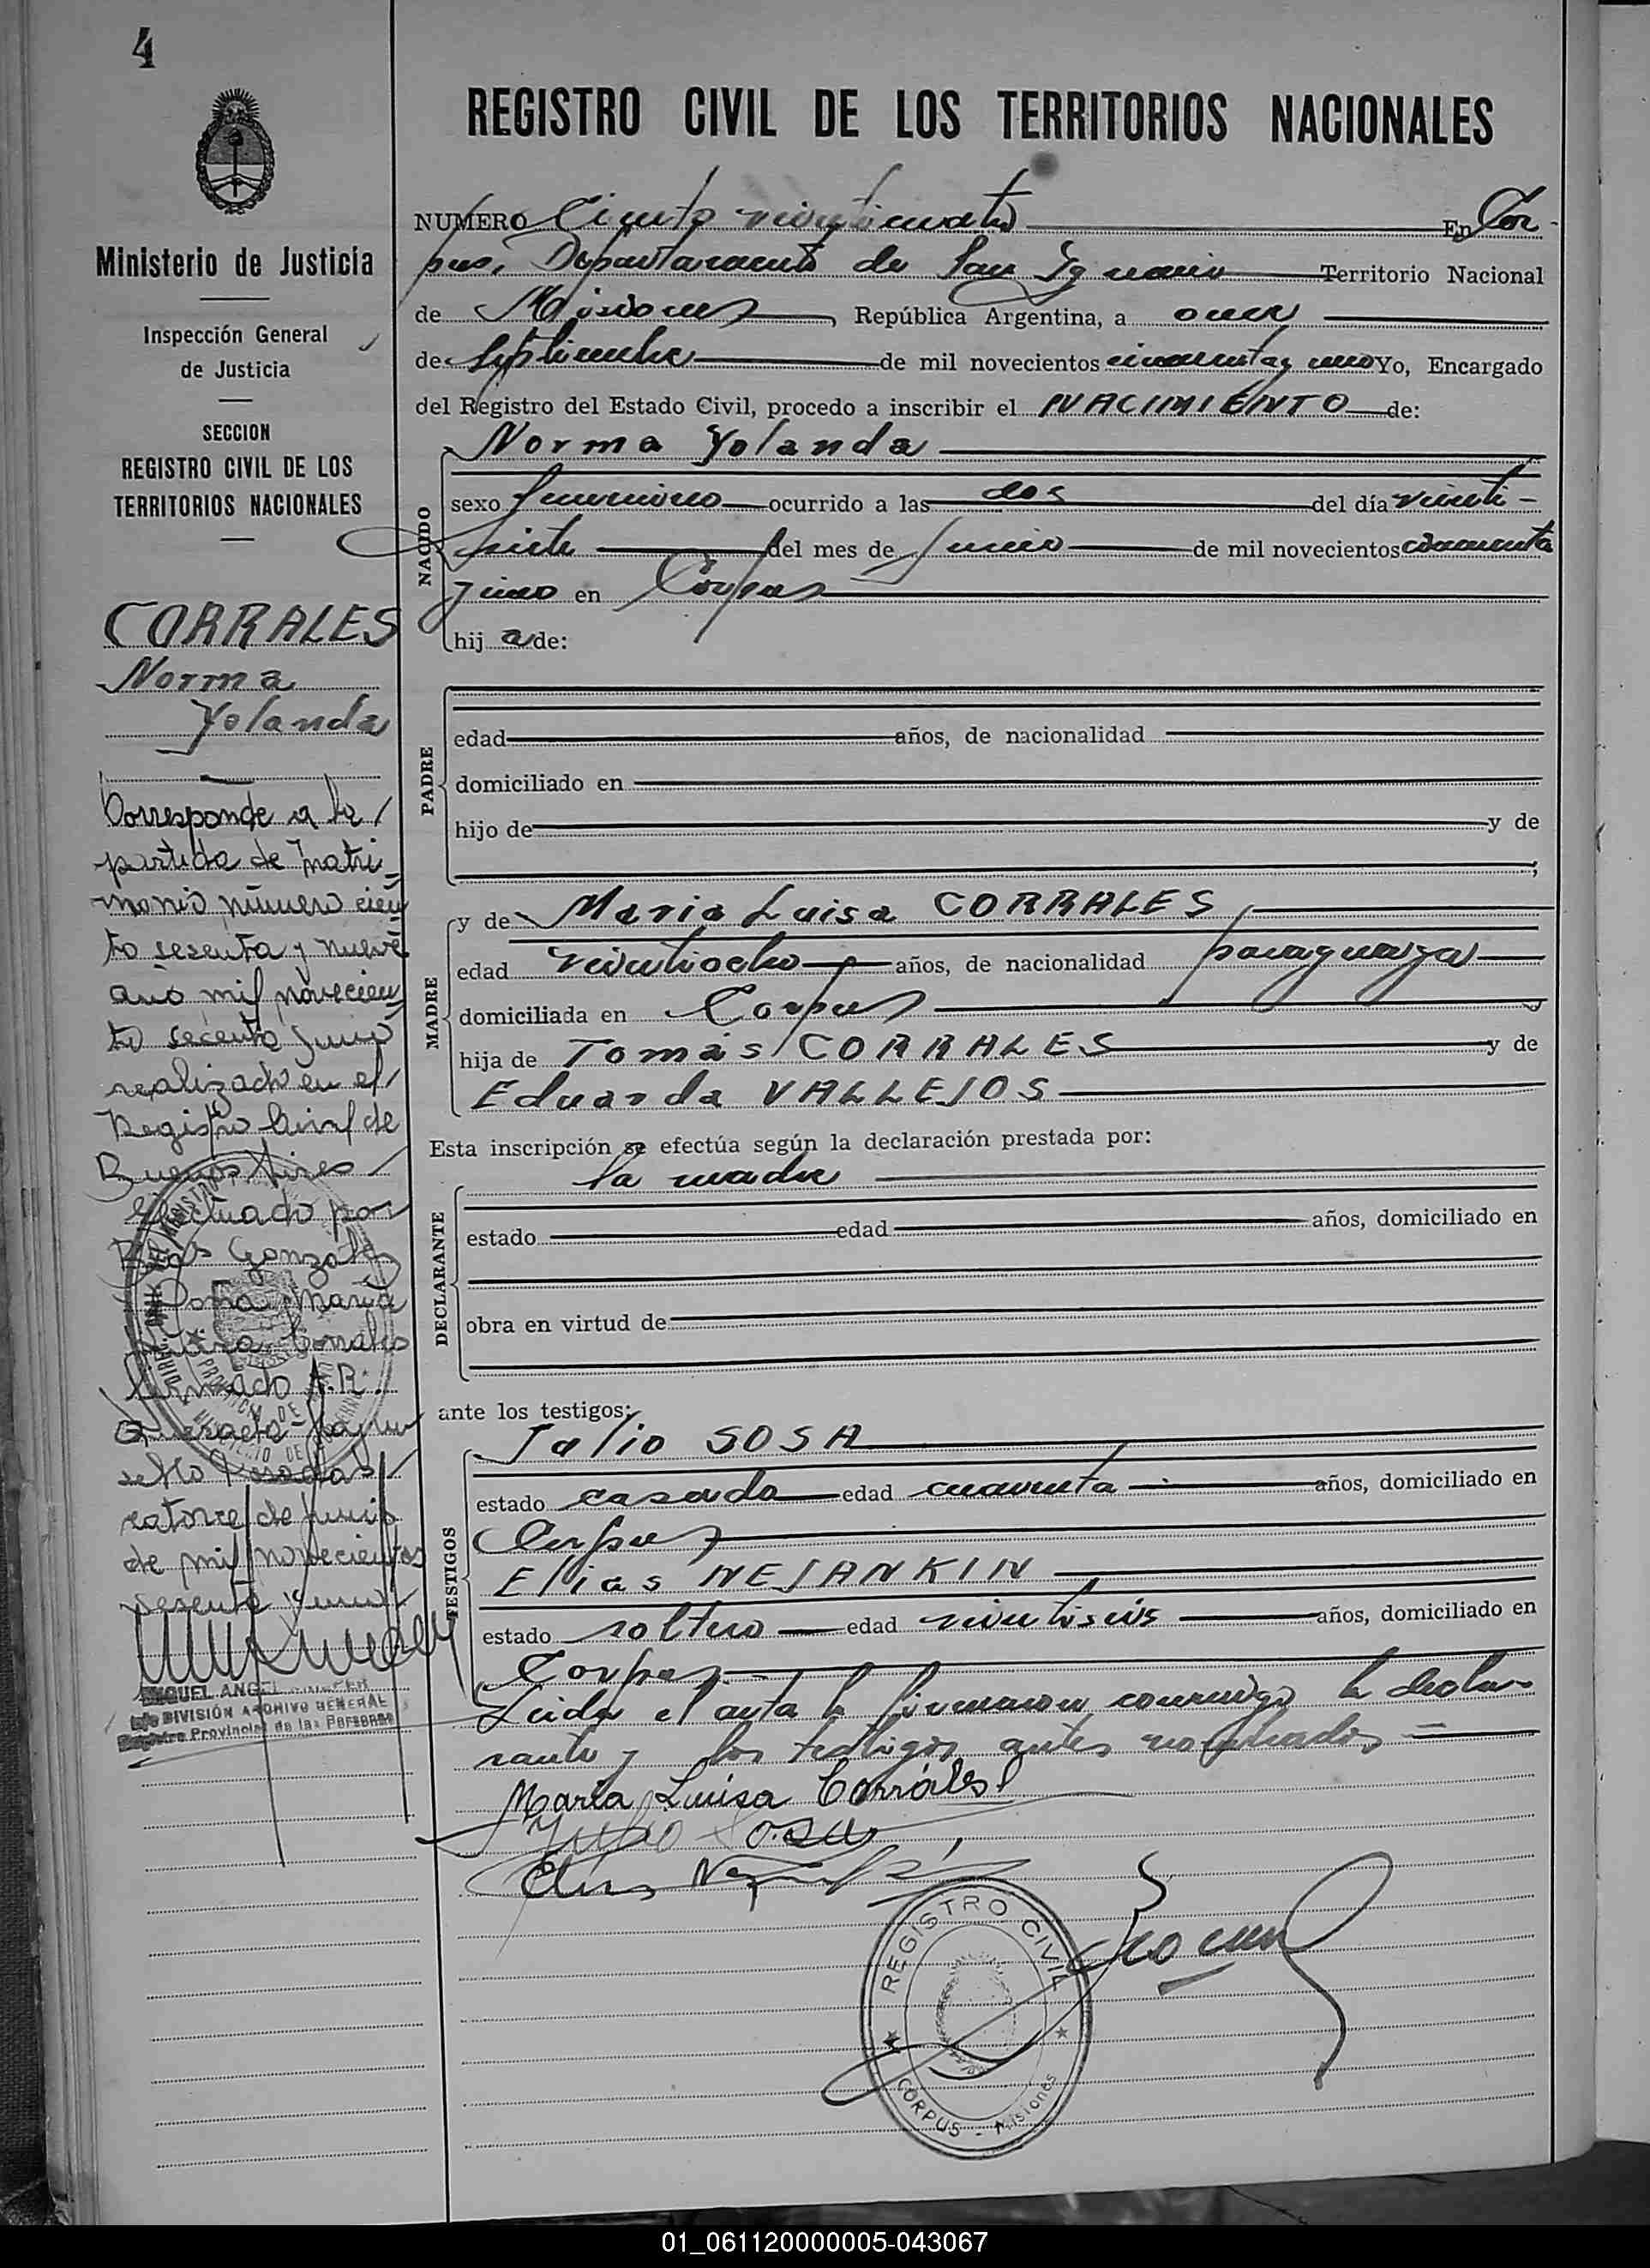 4
Ministerio de Justicia
Inspección General
de Justicia
SECCION
REGISTRO CIVIL DE LOS
TERRITORIOS NACIONALES
CORRALES
Norma
Yolanda
Corresponde a la
partida de matri-
monio número cien
to sesenta y nueve
año mil novecien
to secenta y uno
realizado en el
Registro Civil de
Buenos Aires
efectuado por
Gonzalez
Doña Maria
Luisa Corrales
firmado A.R.
Posadas
catorce de junio
de mil novecientos
sesenta y uno
MIGUEL ANGEL
Jefe DIVISIÓN ARCHIVO GENERAL
Registro Provincial de las Personas
REGISTRO CIVIL DE LOS TERRITORIOS NACIONALES
NUMERO Ciento veinticuatro En Cor-
pus, Departamento de San Ignacio Territorio Nacional
de Misiones, República Argentina, a once
de Septiembre de mil novecientos cincuenta y uno Yo, Encargado
del Registro del Estado Civil, procedo a inscribir el NACIMIENTO de:
NACIDO
Norma Yolanda
sexo femenino ocurrido a las dos del día veinti-
siete del mes de Junio de mil novecientos cincuenta
y uno en Corpus
hij a de:
PADRE
edad años, de nacionalidad
domiciliado en
hijo de y de
;
MADRE
y de Maria Luisa CORRALES
edad veintiocho años, de nacionalidad paraguaya
domiciliada en Corpus
hija de Tomás CORRALES y de
Eduarda VALLEJOS
Esta inscripción se efectúa según la declaración prestada por:
DECLARANTE
la madre
estado edad años, domiciliado en
obra en virtud de
ante los testigos:
TESTIGOS
Julio SOSA
estado casado edad cuarenta años, domiciliado en
Corpus
Elias NEJANKIN
estado soltero edad veintiseis años, domiciliado en
Corpus
Leida el acta la firmaron conmigo la decla-
rante y los testigos antes nombrados
Maria Luisa Corrales
Julio Sosa
Elias
REGISTRO CIVIL
CORPUS - Misiones
01_061120000005-043067